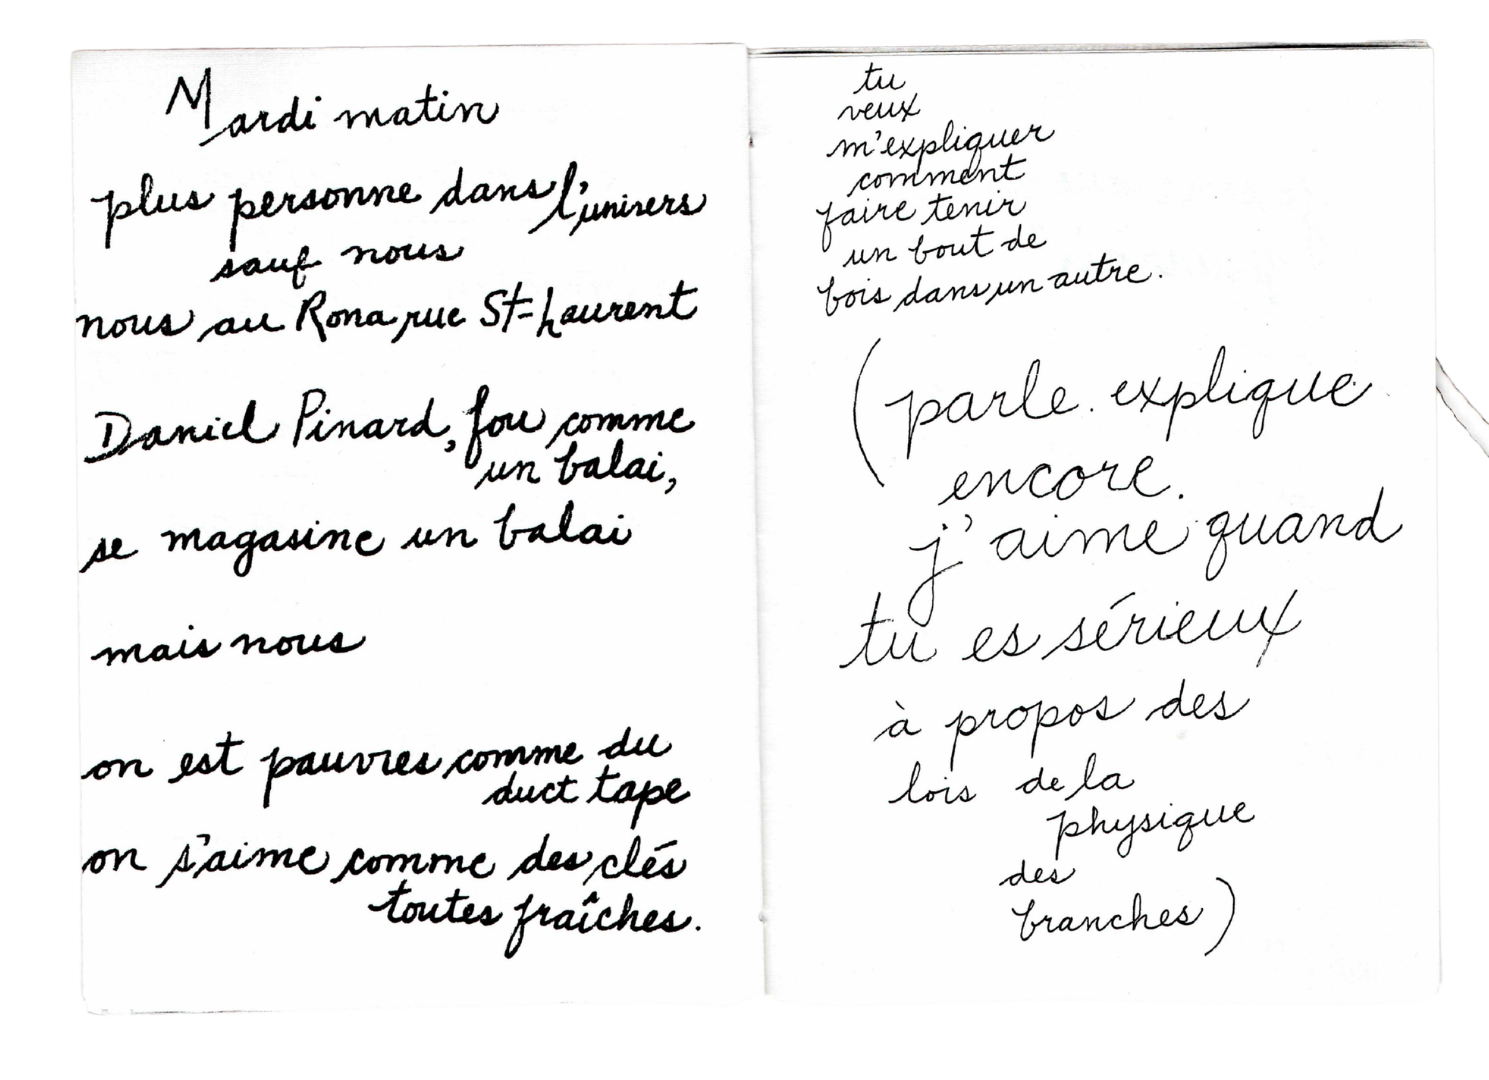 Mardi matin
plus personne dans l'univers
sauf nous
nous au Rona rue St-Laurent
Daniel Pinard, fou comme
un balai,
se magasine un balai
mais nous
on est pauvres comme du
duct tape
on s'aime comme des clés
toutes fraîches.
tu
veux
m'expliquer
comment
faire tenir
un bout de
bois dans un autre.
(parle. explique
encore.
j'aime quand
tu es sérieux
à propos des
lois de la
physique
des
branches)